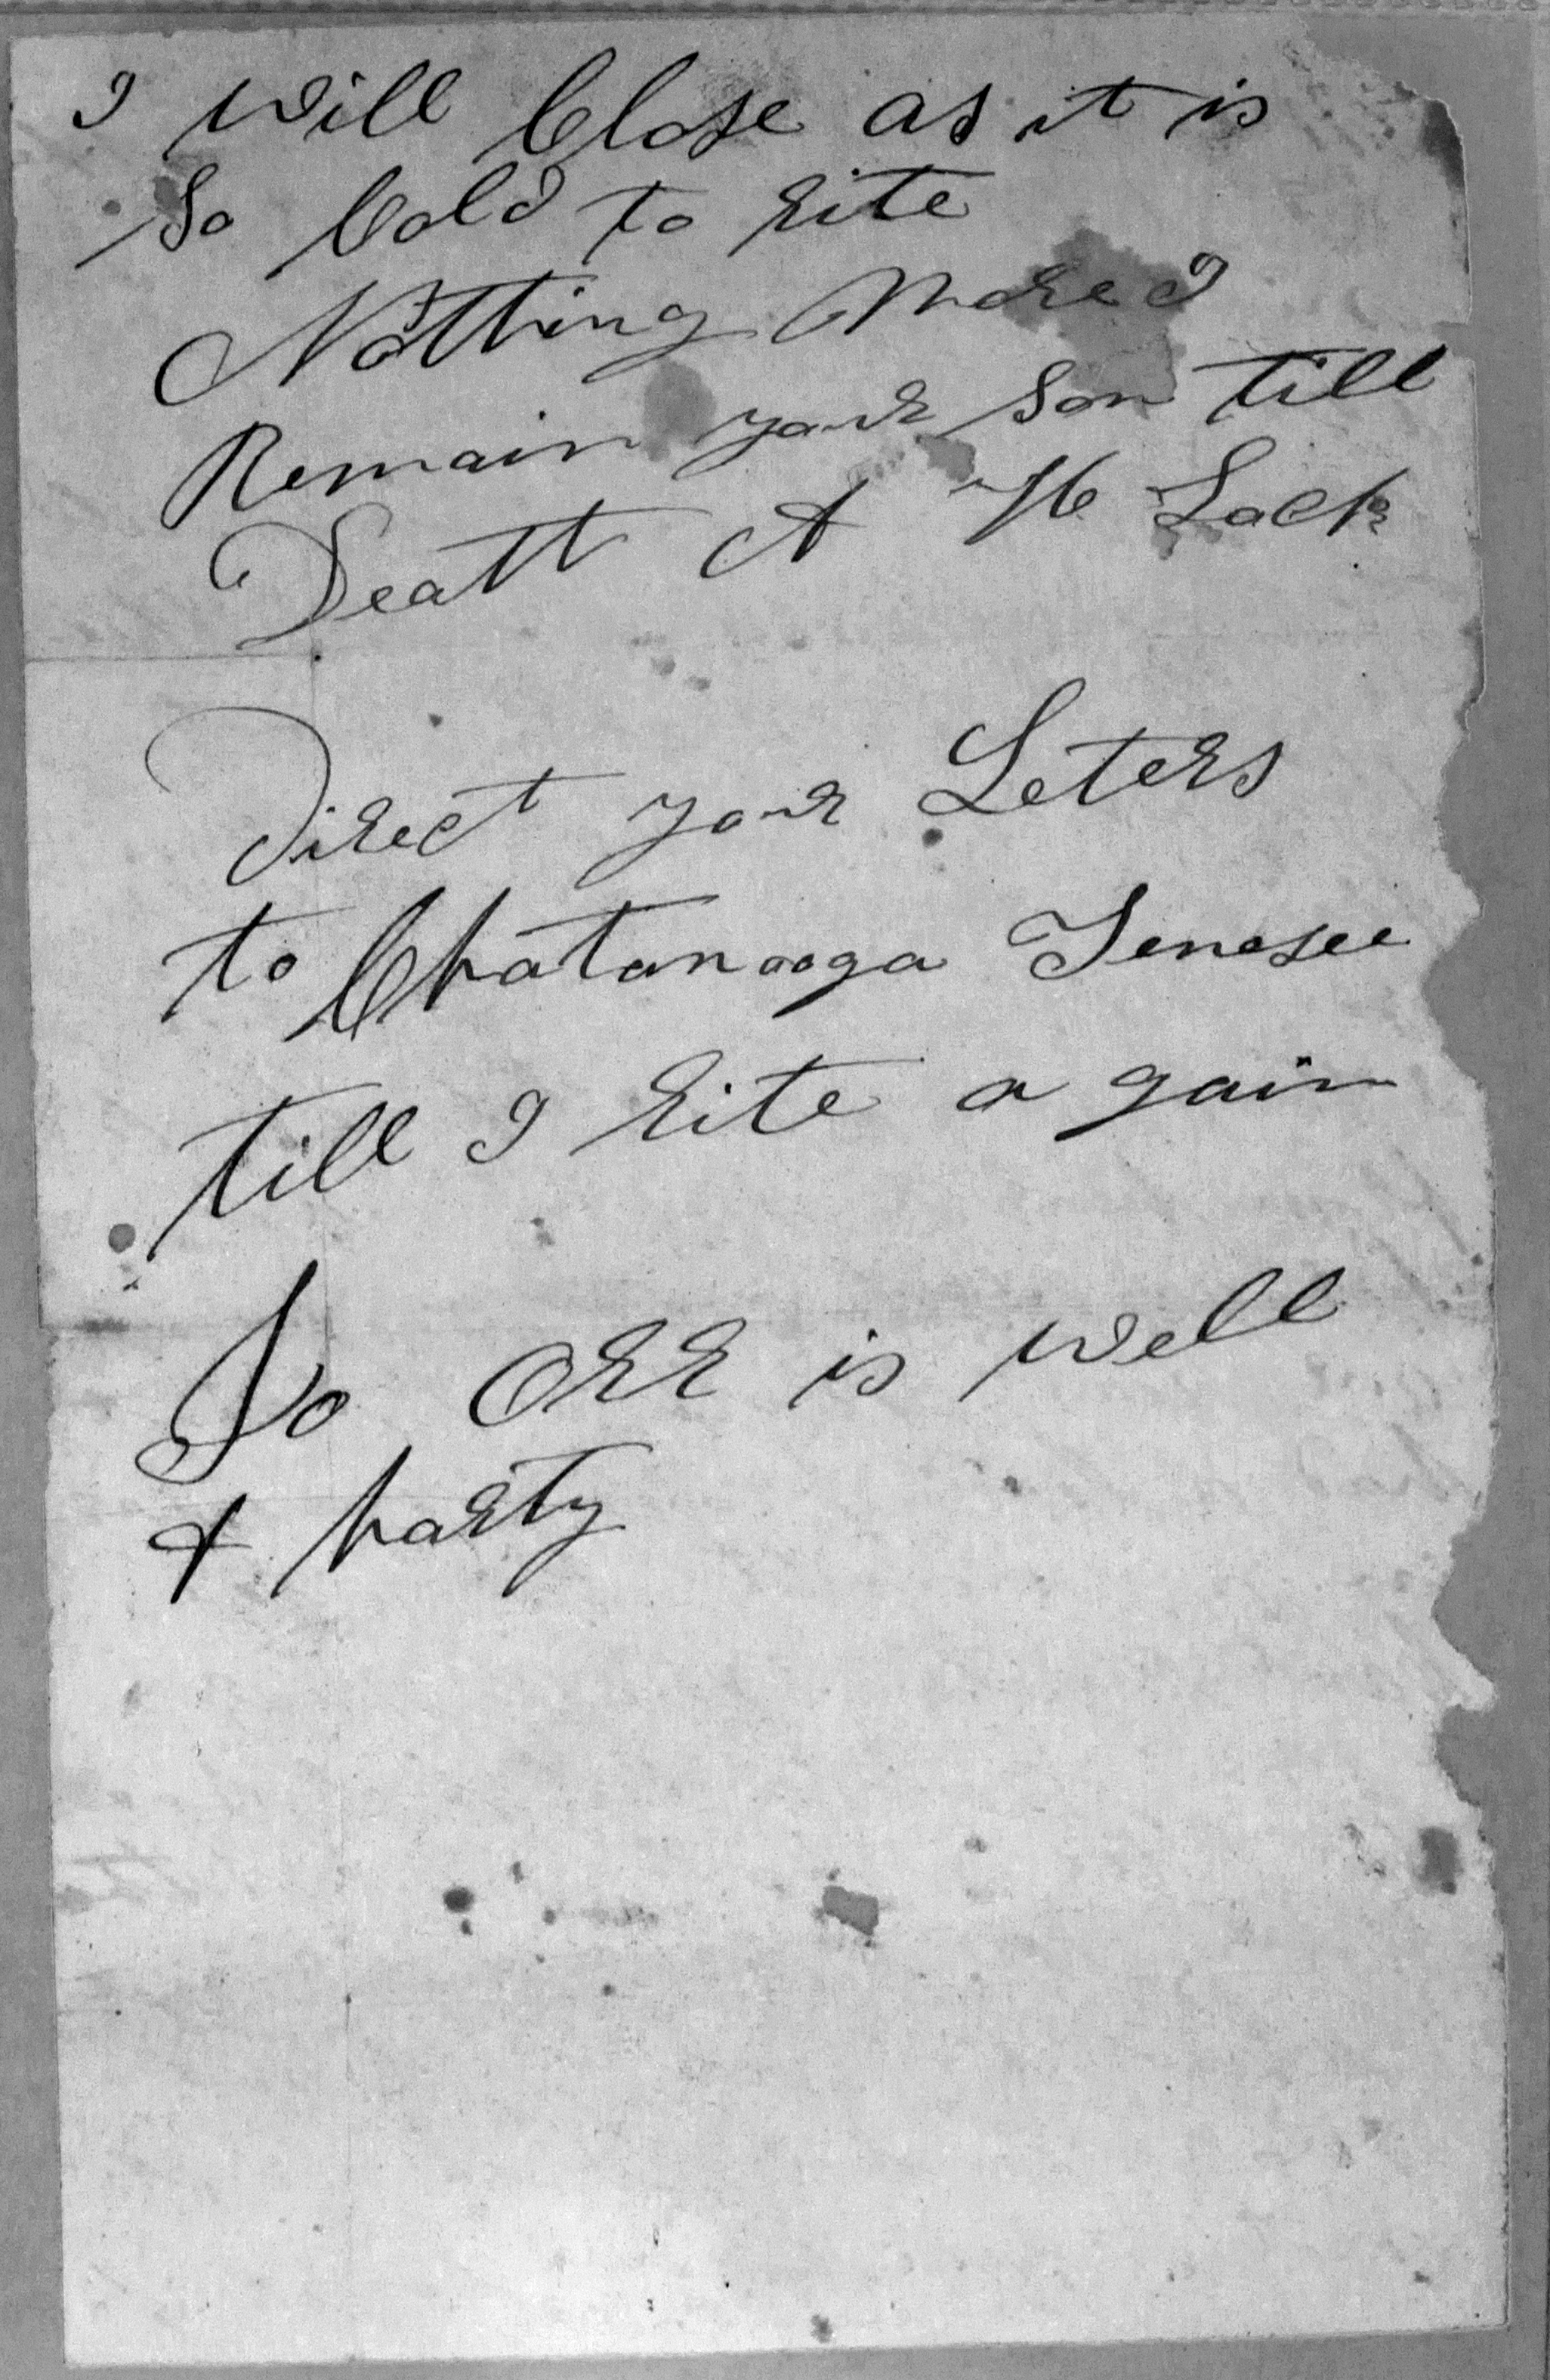 I will Close as it is
So Cold to rite
Notthing More I
Remain your Son till
Deatt A H Lock
Direct your Leters
to Chatanooga Tenesee
till I rite a gain
Jo Orr is well
& harty